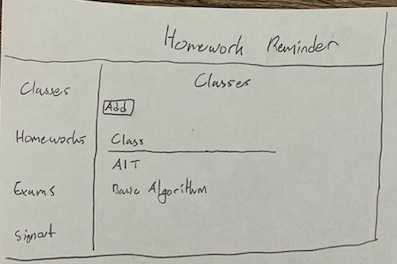 Homework Reminder
Classes
Homeworks
Exams
Signout
Classes
Add
Class
AIT
Basic Algorithm